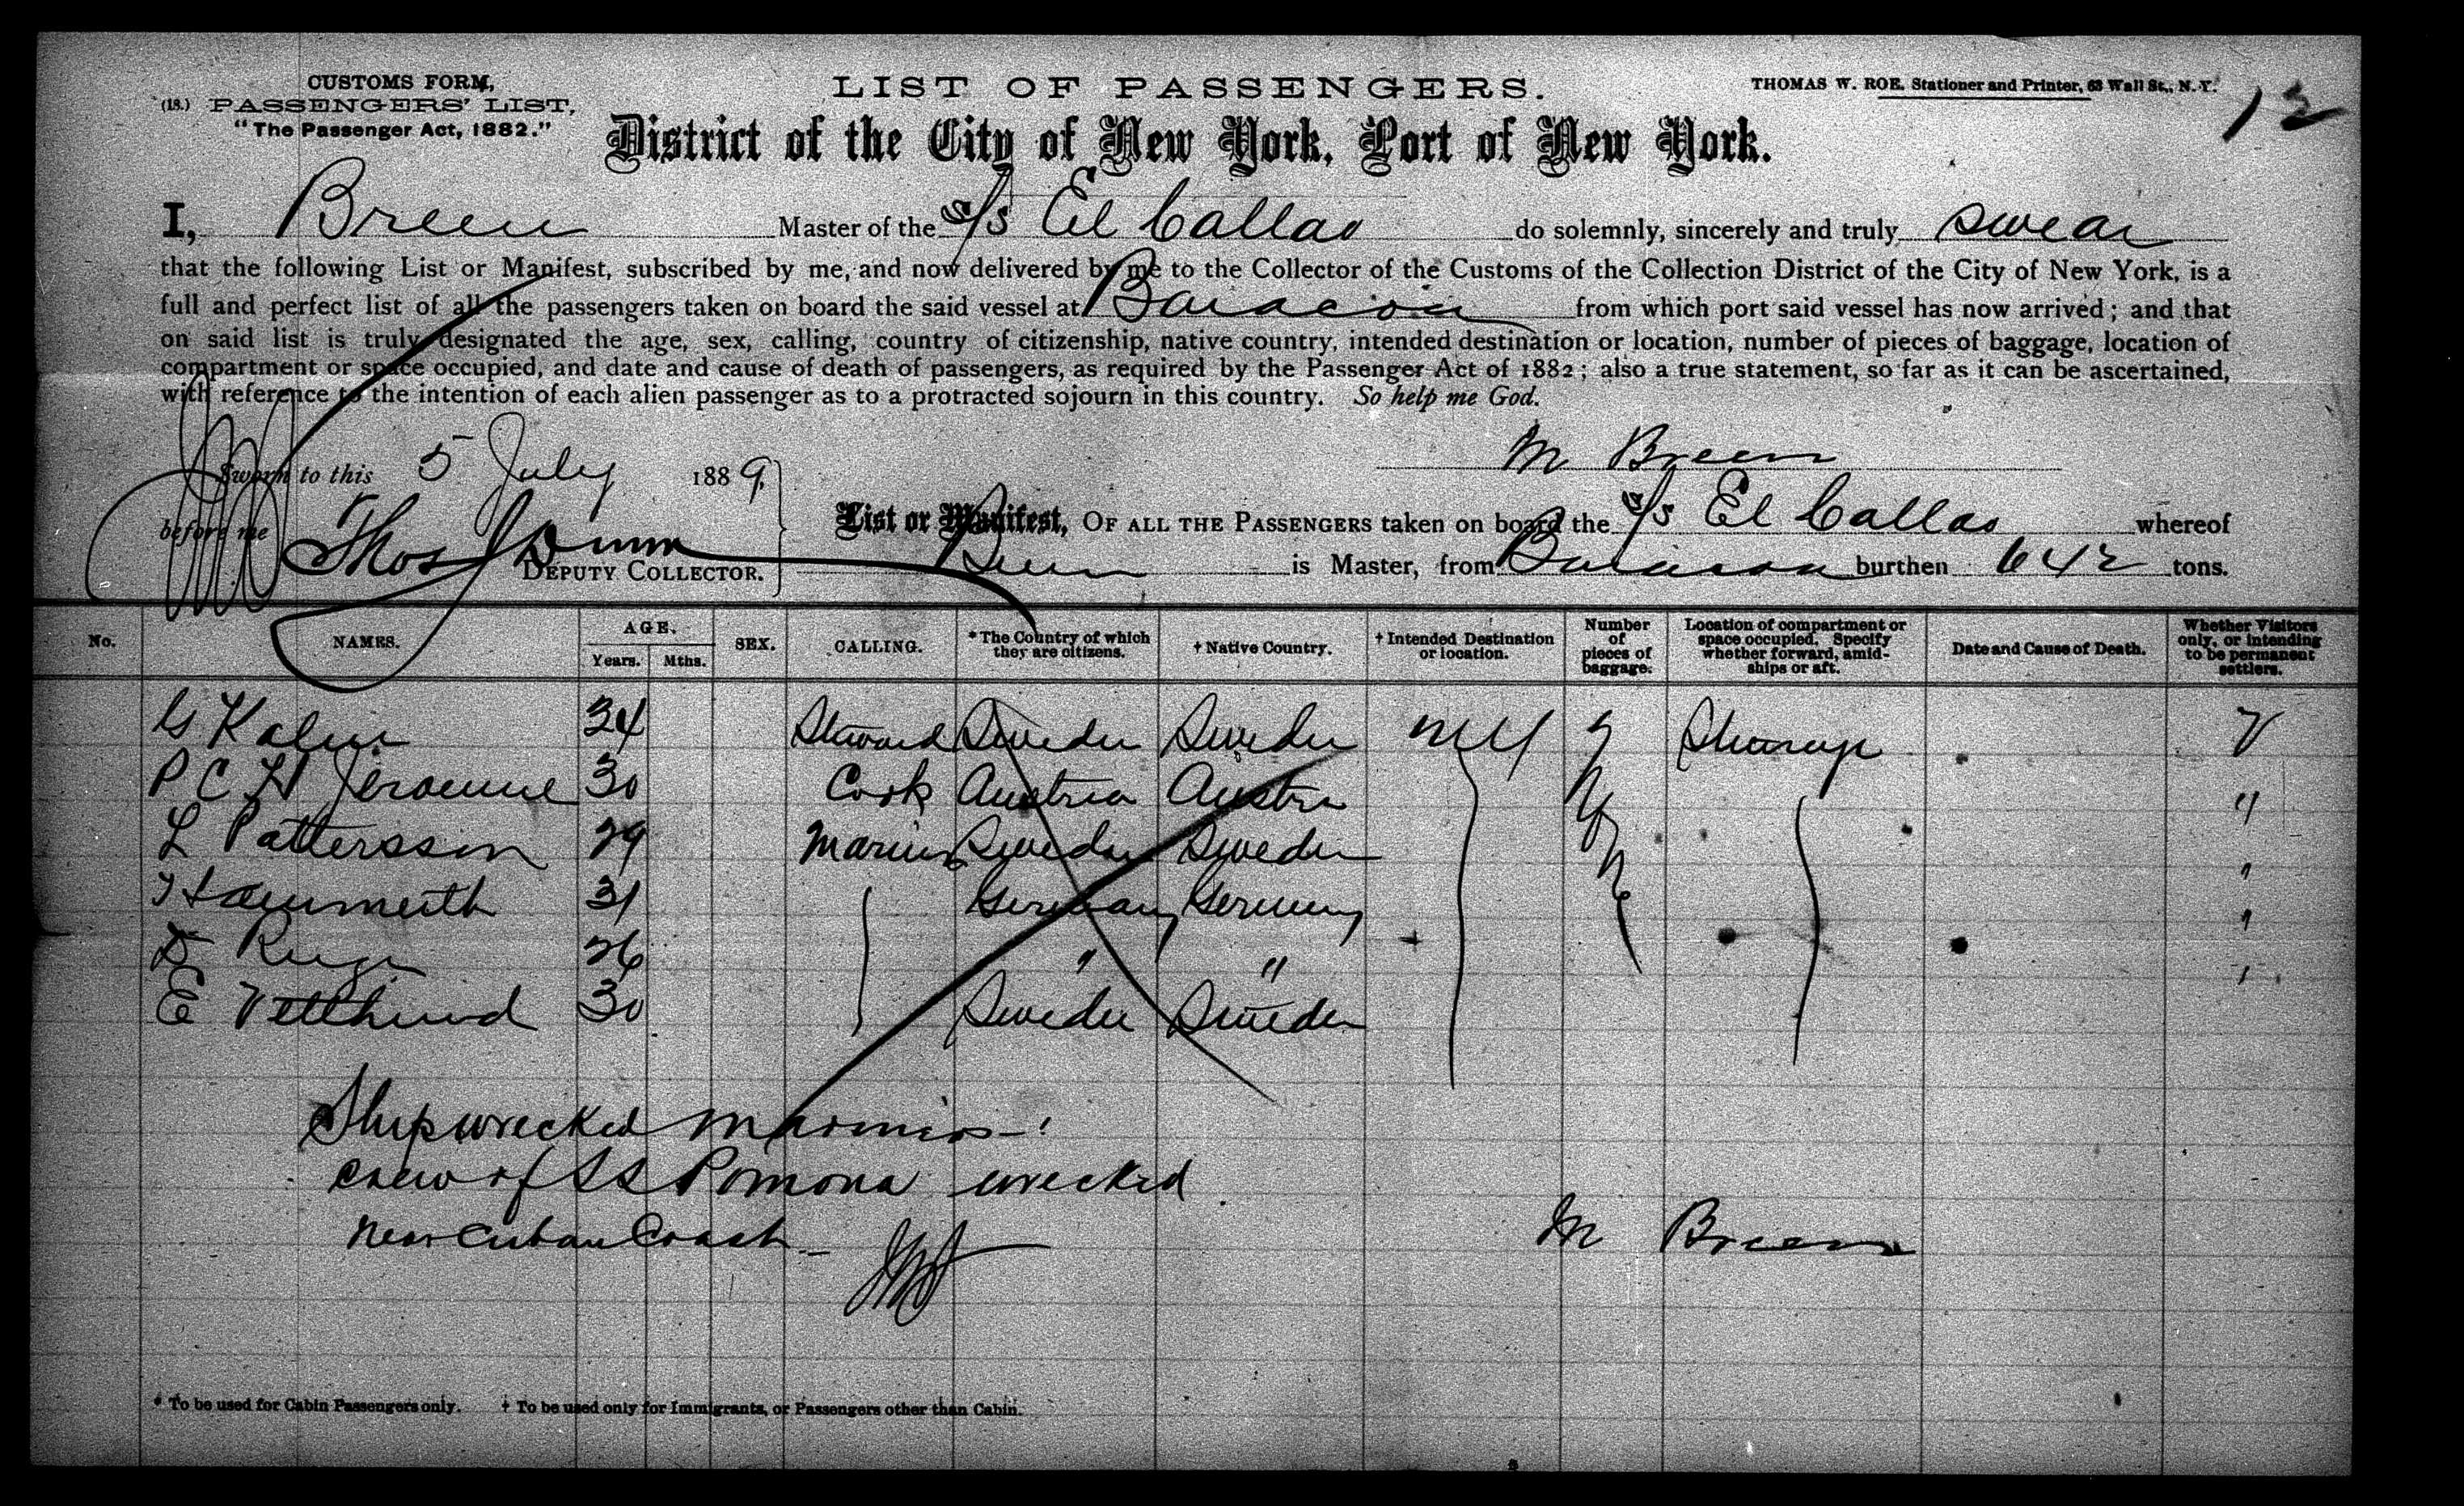 CUSTOMS FORM,
(18.) PASSENGERS' LIST,
"The Passenger Act, 1882."
LIST OF PASSENGERS.
THOMAS W. ROE, Stationer and Printer, 63 Wall St., N.Y.
12
District of the City of New York, Port of New York.
I, Breen Master of the S/S El Callao do solemnly, sincerely and truly swear
that the following List or Manifest, subscribed by me, and now delivered by me to the Collector of the Customs of the Collection District of the City of New York, is a
full and perfect list of all the passengers taken on board the said vessel at Baracoa from which port said vessel has now arrived; and that
on said list is truly designated the age, sex, calling, country of citizenship, native country, intended destination or location, number of pieces of baggage, location of
compartment or space occupied, and date and cause of death of passengers, as required by the Passenger Act of 1882; also a true statement, so far as it can be ascertained,
with reference to the intention of each alien passenger as to a protracted sojourn in this country. So help me God.
M Breen
Sworn to this 5 July 1889.
before me Thos J Dunn
DEPUTY COLLECTOR.
List or Manifest, OF ALL THE PASSENGERS taken on board the S/S El Callao whereof
Breen is Master, from Baracoa burthen 642 tons.
No. NAMES. AGE. Years. Mths. SEX. CALLING. *The Country of which they are citizens. †Native Country. †Intended Destination or location. Number of pieces of baggage. Location of compartment or space occupied. Specify whether forward, amidships or aft. Date and Cause of Death. Whether Visitors only, or intending to be permanent settlers.
G 34 Steward Sweden Sweden NY Steerage V
P C H 30 Cook Austria Austria "
L Pattersson 29 Mariner Sweden Sweden "
31 Germany Germany "
26 " " "
E 30 Sweden Sweden
None
Shipwrecked Mariners
crew of SS Pomona wrecked
near Cuban Coast
M Breen
* To be used for Cabin Passengers only. † To be used only for Immigrants, or Passengers other than Cabin.